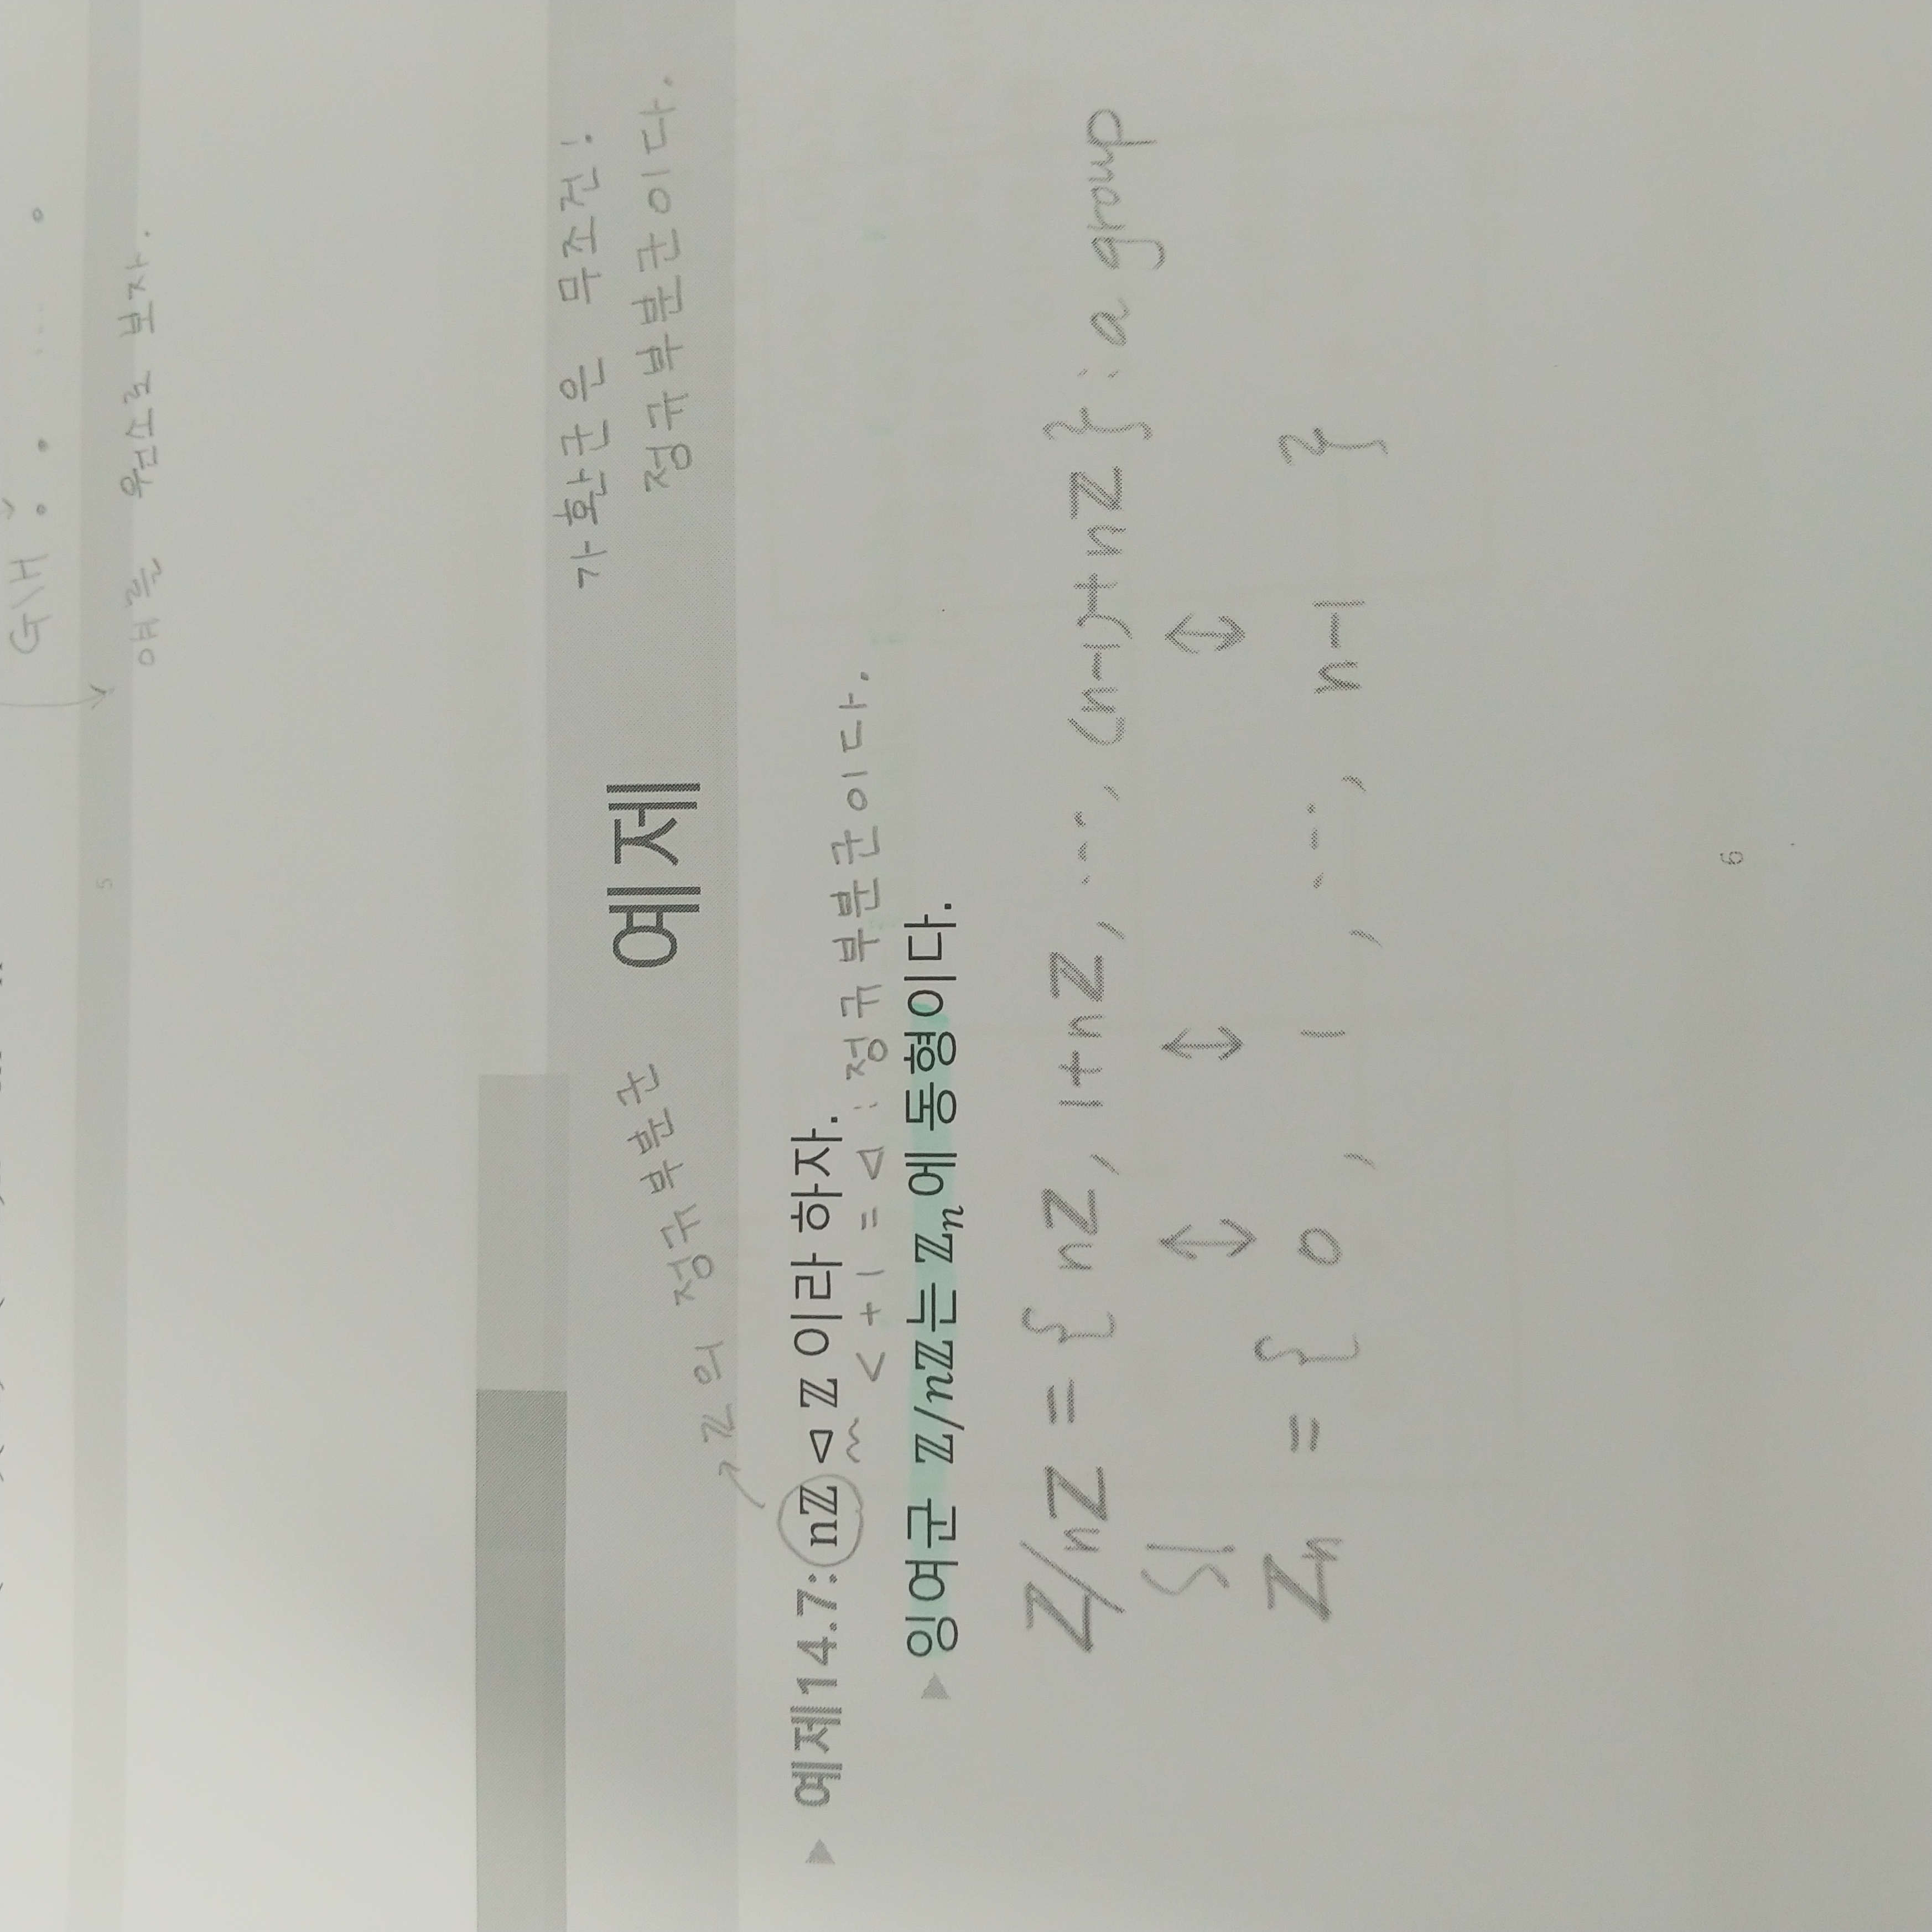 G\H : . ... .
5
얘를 원소로 보자.
가환군은 무조건!
정규부분군이다.
예제
ℤ의 정규부분군
예제14.7: nℤ ⊲ ℤ 이라 하자.
< + | = ⊲ : 정규부분군이다.
잉여군 ℤ/nℤ는 ℤₙ에 동형이다.
ℤ/nℤ = { nℤ, 1+nℤ, ..., (n-1)+nℤ } : a group
≀|
ℤₙ = { 0 , 1 , ..., n-1 }
6